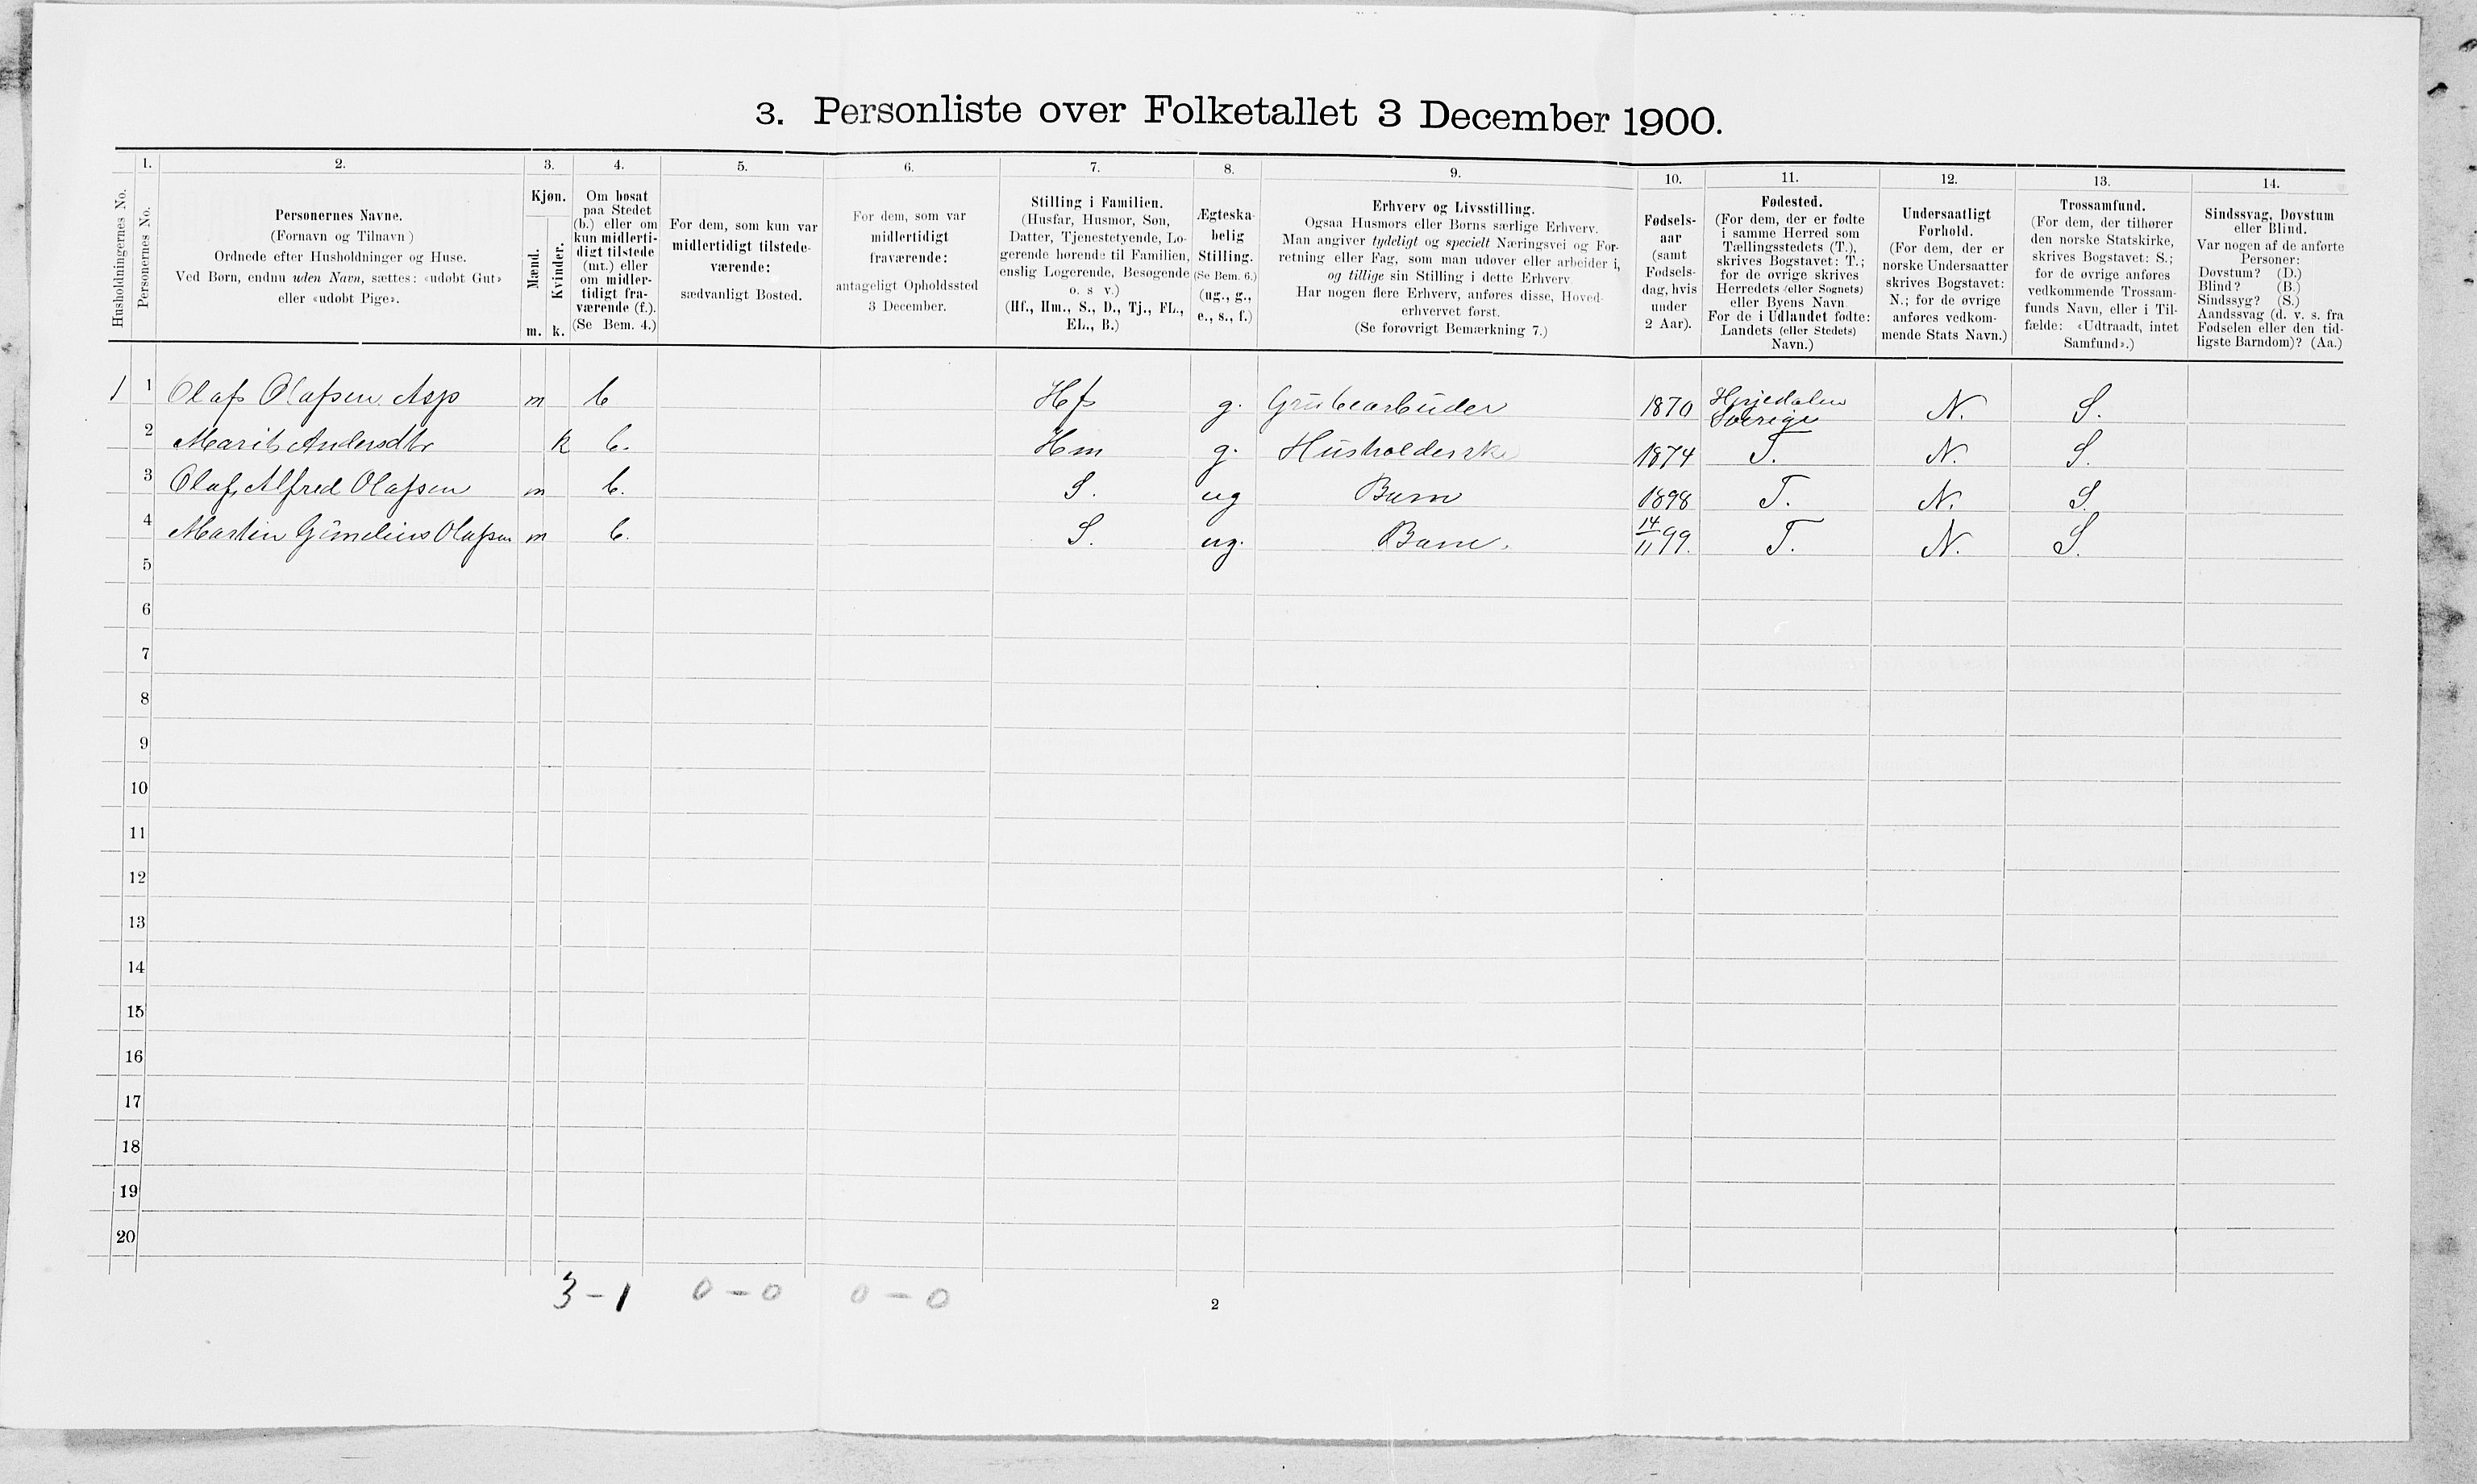 3. Personliste over Folketallet 3 December 1900.
Husholdningernes No.
1.
Personernes No.
2.
Personernes Navne.
(Fornavn og Tilnavn)
Ordnede efter Husholdninger og Huse.
Ved Børn, endnu uden Navn, sættes: «udøbt Gut»
eller «udøbt Pige».
3.
Kjøn.
Mænd.
Kvinder.
m. k.
4.
Om bosat
paa Stedet
(b.) eller om
kun midlerti-
digt tilstede
(mt.) eller
om midler-
tidigt fra-
værende (f.).
(Se Bem. 4.)
5.
For dem, som kun var
midlertidigt tilstede-
værende:
sædvanligt Bosted.
6.
For dem, som var
midlertidigt
fraværende:
antageligt Opholdssted
3 December.
7.
Stilling i Familien.
(Husfar, Husmor, Søn,
Datter, Tjenestetyende, Lo-
gerende hørende til Familien,
enslig Logerende, Besøgende
o. s v.)
(Hf., Hm., S., D., Tj., FL.,
EL., B.)
8.
Ægteska-
belig
Stilling.
(Se Bem. 6.)
(ug., g.,
e., s., f.)
9.
Erhverv og Livsstilling.
Ogsaa Husmors eller Børns særlige Erhverv.
Man angiver tydeligt og specielt Næringsvei og For-
retning eller Fag, som man udøver eller arbeider i,
og tillige sin Stilling i dette Erhverv
Har nogen flere Erhverv, anføres disse, Hoved-
erhvervet først.
(Se forøvrigt Bemærkning 7.)
10.
Fødsels-
aar
(samt
Fødsels-
dag, hvis
under
2 Aar).
11.
Fødested.
(For dem, der er fødte
i samme Herred som
Tællingsstedets (T.),
skrives Bogstavet: T.;
for de øvrige skrives
Herredets (eller Sognets)
eller Byens Navn
For de i Udlandet fødte:
Landets (eller Stedets)
Navn.)
12.
Undersaatligt
Forhold.
(For dem, der er
norske Undersaatter
skrives Bogstavet:
N.; for de øvrige
anføres vedkom-
mende Stats Navn.)
13.
Trossamfund.
(For dem, der tilhører
den norske Statskirke,
skrives Bogstavet: S.;
for de øvrige anføres
vedkommende Trossam-
funds Navn, eller i Til-
fælde: «Udtraadt, intet
Samfund».)
14.
Sindssvag, Døvstum
eller Blind.
Var nogen af de anførte
Personer:
Døvstum? (D.)
Blind? (B.)
Sindssyg? (S.)
Aandssvag (d. v. s. fra
Fødselen eller den tid-
ligste Barndom)? (Aa.)
1 1 Olaf Olafsen Asp m b Hf g. Grubearbeider 1870 Herjedalen Sverige N. S.
2 Marit Andersdtr k b. Hm g. Husholderske 1874 T. N. S.
3 Olaf Alfred Olafsen m b. S. ug Barn 1898 T. N. S.
4 Martin Gûnelius Olafsen m b. S. ug. Barn. 14/11 99. T. N. S.
5
6
7
8
9
10
11
12
13
14
15
16
17
18
19
20
3-1 0-0 0-0
2